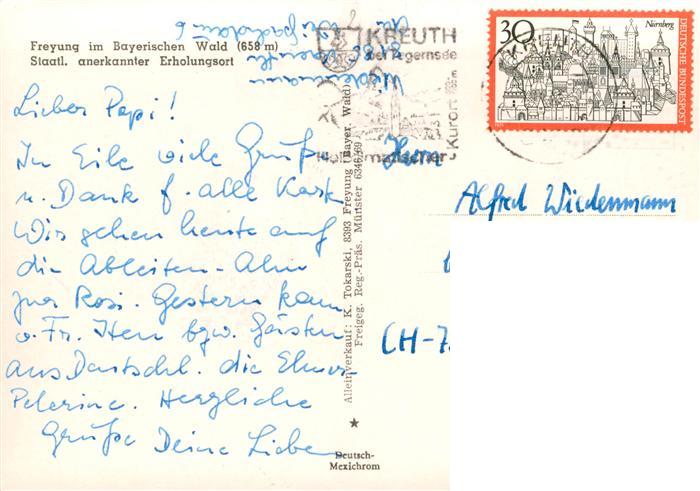 Freyung im Bayerischen Wald (658 m)
Staatl. anerkannter Erholungsort
Lieber Papi!
In Eile viele Grüße
u. Dank f. alle Kart
Wir gehen heute auf
die Ableiten-Alm
zur Rosi. Gestern kam
v. Fr. Hen bzw. Gästen
aus Deutschl. die
Pelerine. Herzliche
Grüße Deine Lieben
Wiedenmann
8185 Kreuth
KREUTH
bei Tegernsee
Kurort
30
Nürnberg
DEUTSCHE BUNDESPOST
KREUTH
Herrn
Alfred Wiedenmann
CH-7
Alleinverkauf: K. Tokarski, 8393 Freyung (Bayer. Wald)
Freigeg. Reg.-Präs. Münster
Deutsch-
Mexichrom